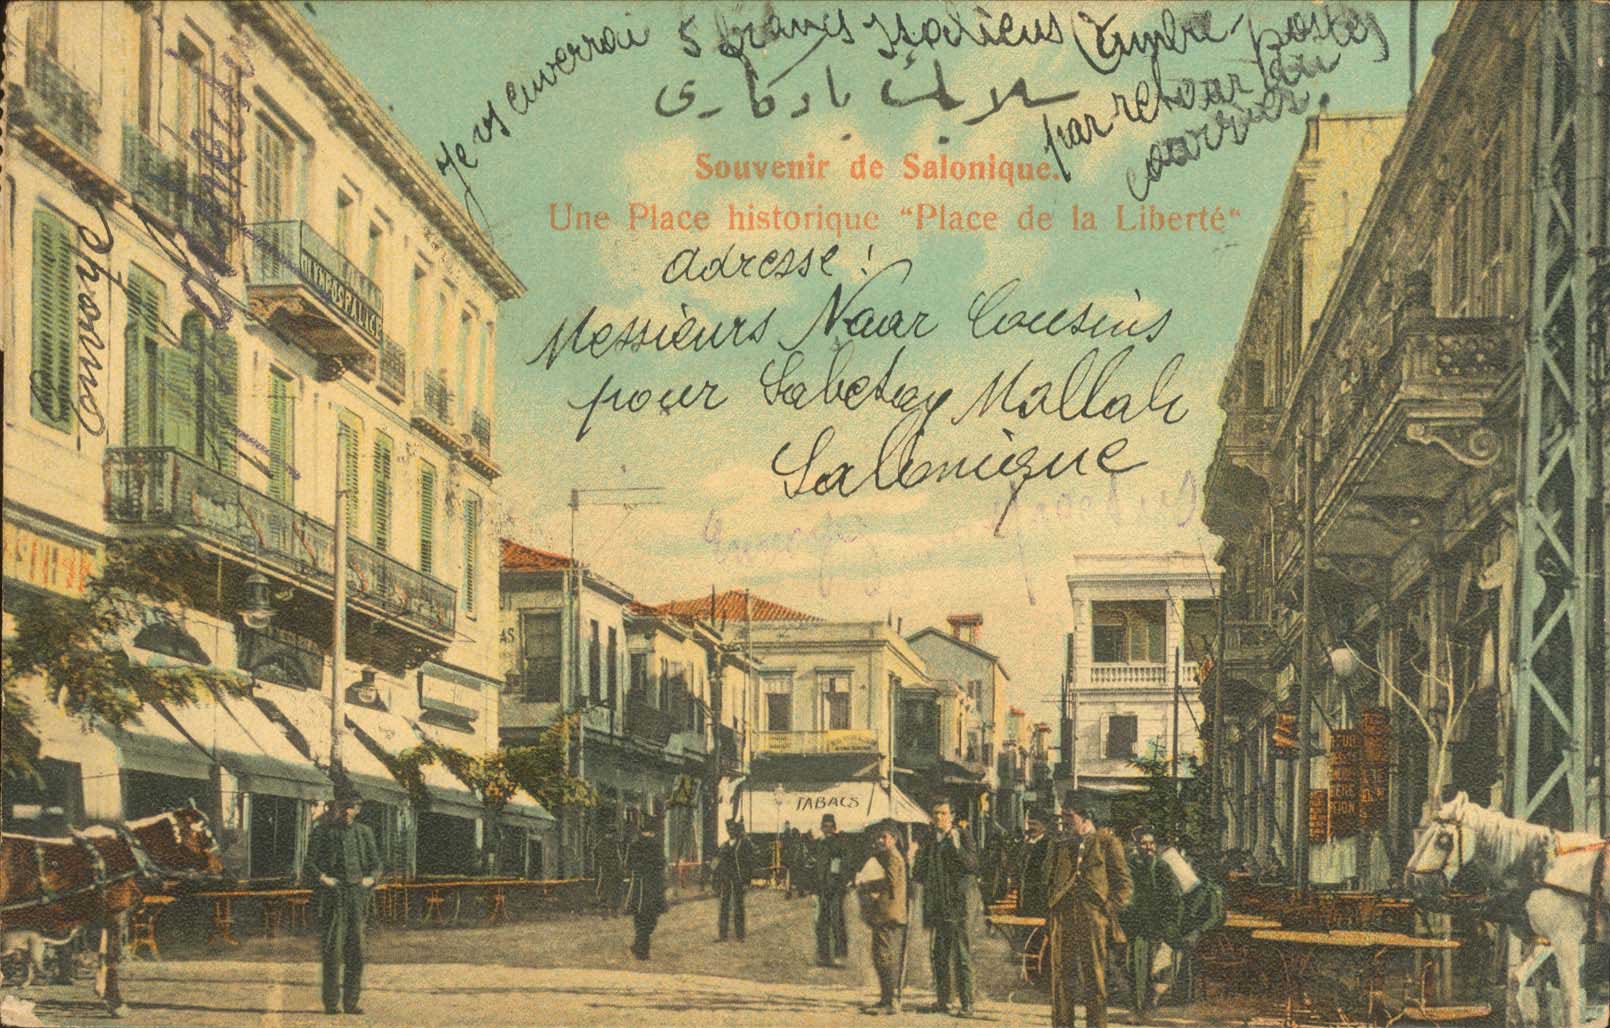 Je vs enverrai 5 francs Italiens (Timbre-postes
par retour du
courrier.
سلانیك یادكاری
Souvenir de Salonique.
Une Place historique “Place de la Liberté“
adresse:
Messieurs Naar Cousins
pour Sabetay Mallah
Salonique
envoyé
OLYMPOS PALACE
TABACS